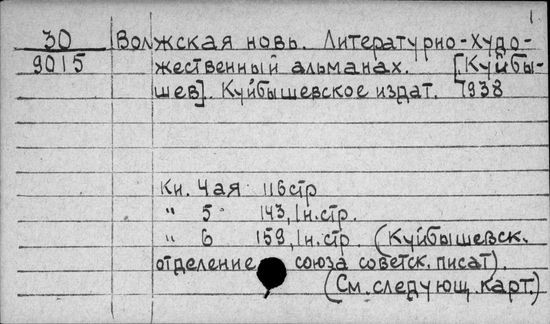 1
30 Волжская новь. Литературно-худо-
9015 жественный альманах. [Куйбы-
шев]. Куйбышевское издат. 1938
Кн. 4ая 116стр
" 5 143, 1н.стр.
" 6 159, 1н.стр. (Куйбышевск.
отделение союза советск. писат).
(См. следующ. карт.)